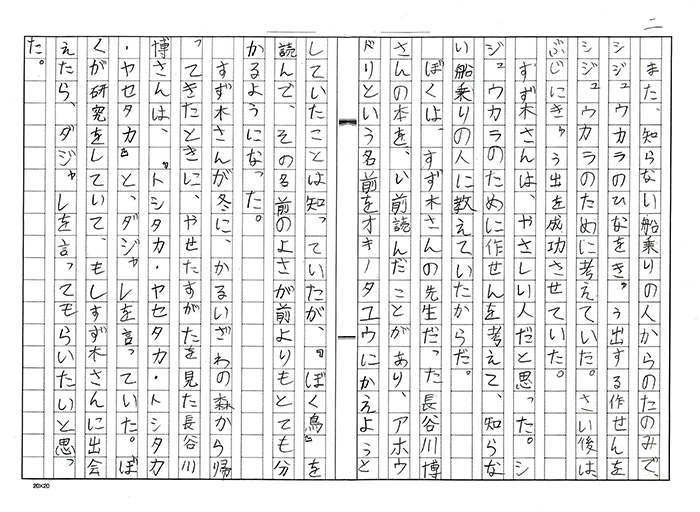 二
また、知らない船乗りの人からのたのみで、
シジュウカラのひなをきゅう出する作せんを
シジュウカラのために考えていた。さい後は、
ぶじにきゅう出を成功させていた。
すず木さんは、やさしい人だと思った。シ
ジュウカラのために作せんを考えて、知らな
い船乗りの人に教えていたからだ。
ぼくは、すず木さんの先生だった長谷川博
さんの本を、い前読んだことがあり、アホウ
ドリという名前をオキノタユウにかえようと
していたことは知っていたが、『ぼく鳥』を
読んで、その名前のよさが前よりもとても分
かるようになった。
すず木さんが冬に、かるいざわの森から帰
ってきたときに、やせたすがたを見た長谷川
博さんは、『トシタカ・ヤセタカ・トシタカ
・ヤセタカ』と、ダジャレを言っていた。ぼ
くが研究をしていて、もしすず木さんに出会
えたら、ダジャレを言ってもらいたいと思っ
た。
20×20